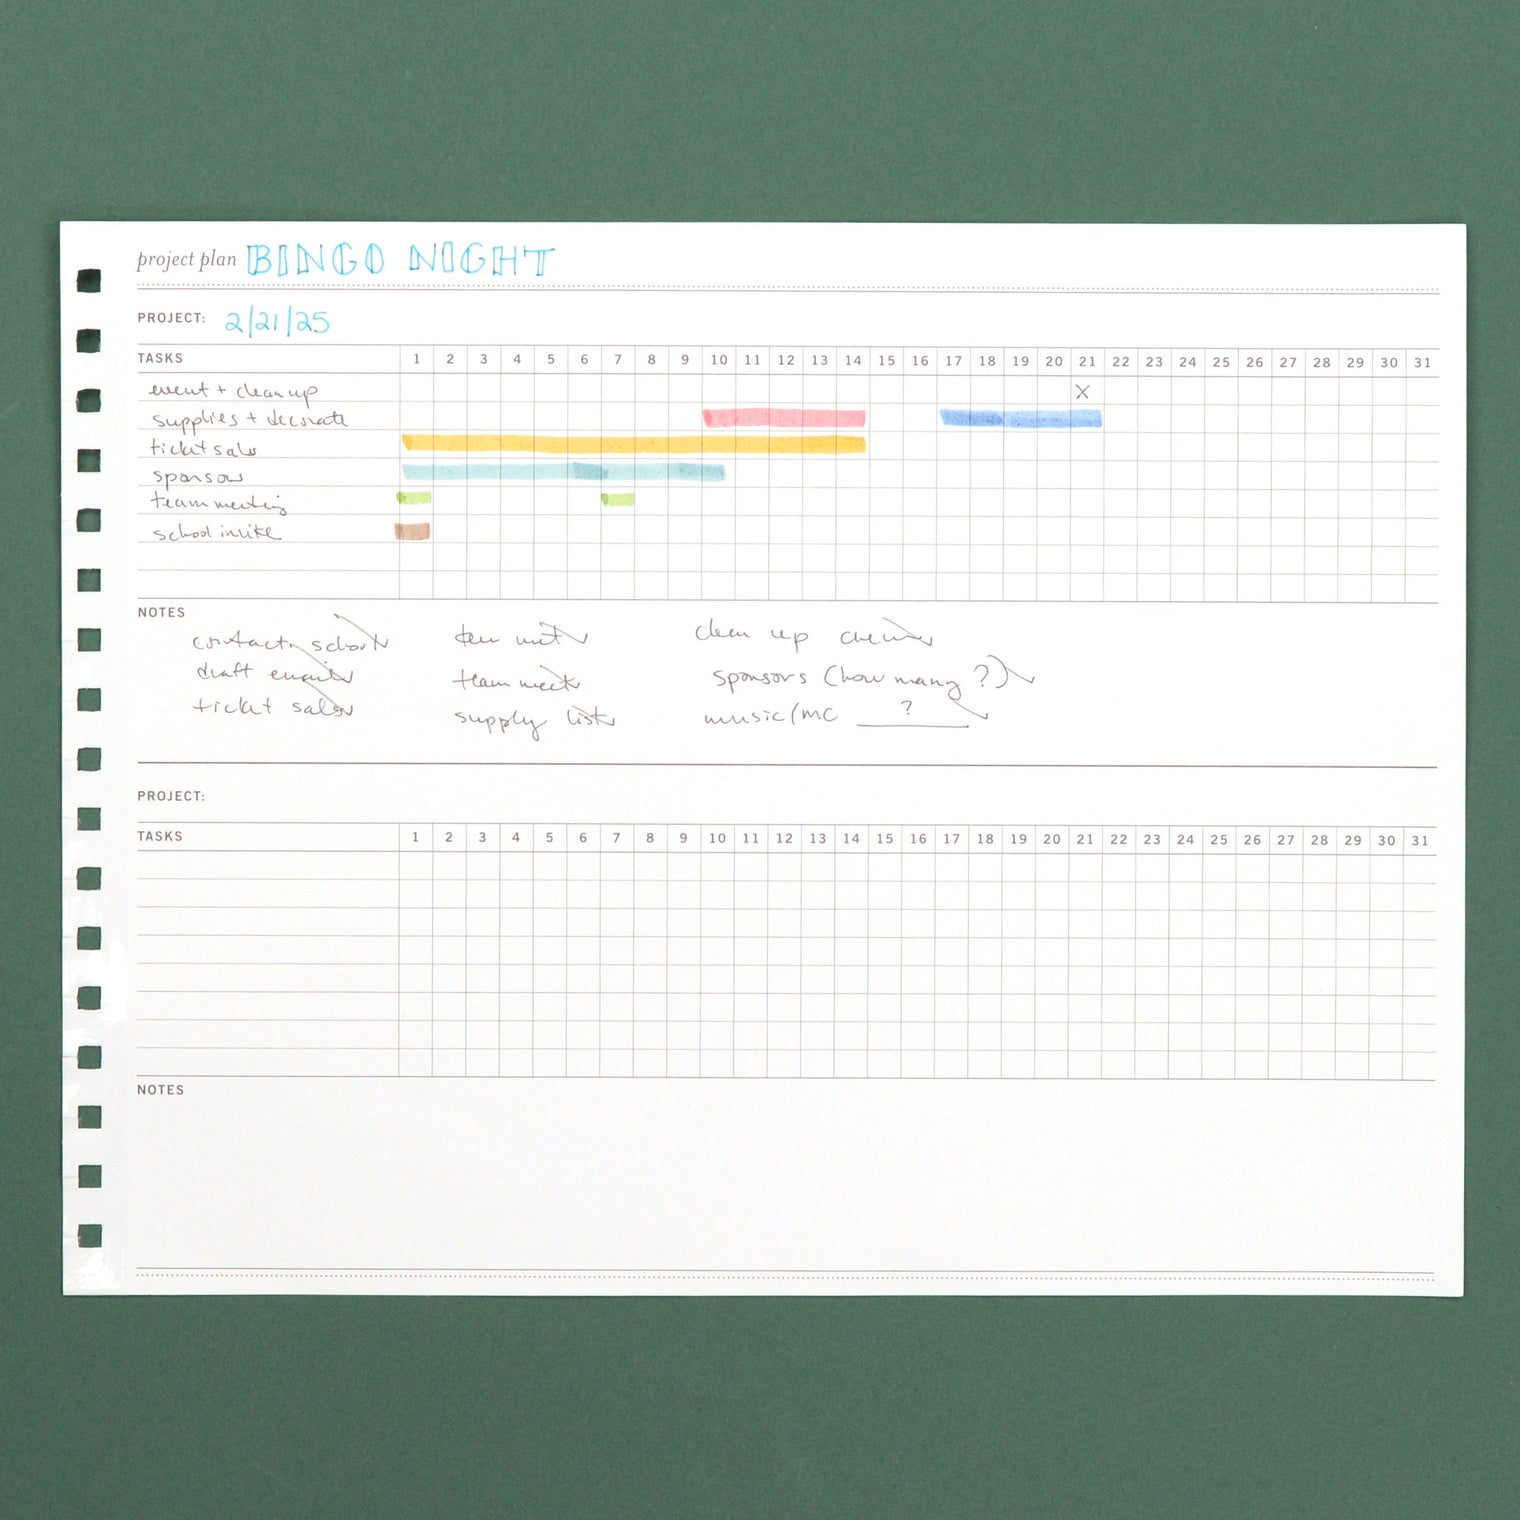 project plan BINGO NIGHT
PROJECT: 2/21/25
TASKS 1 2 3 4 5 6 7 8 9 10 11 12 13 14 15 16 17 18 19 20 21 22 23 24 25 26 27 28 29 30 31
event + clean up X
supplies + decorate
ticket sales
sponsors
team meeting
school invite
NOTES
contact school
draft emails
ticket sales
team meet
supply list
clean up crew
sponsors (how many ?)
music/MC ?
PROJECT:
TASKS 1 2 3 4 5 6 7 8 9 10 11 12 13 14 15 16 17 18 19 20 21 22 23 24 25 26 27 28 29 30 31
NOTES